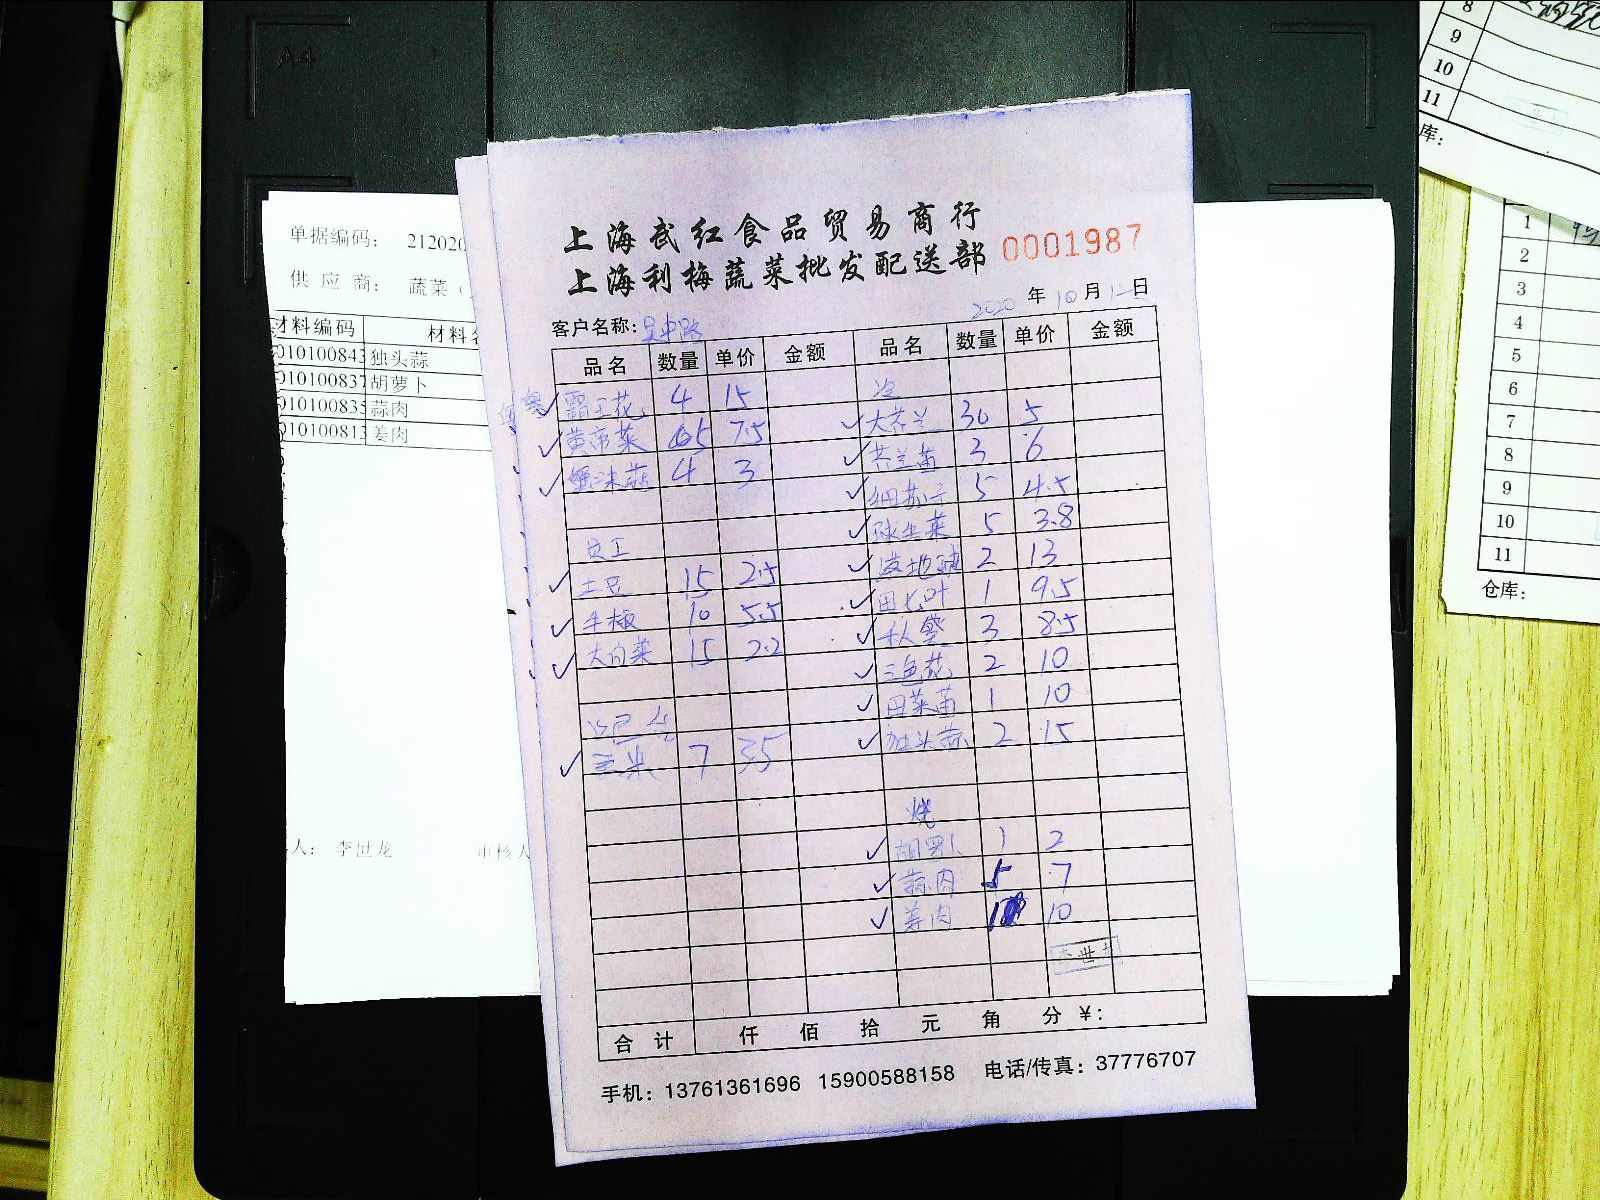 A4
8
9
10
11
库：
单据编码： 212020
供 应 商： 蔬菜（
材料编码 材料名
010100843 独头蒜
010100837 胡萝卜
010100835 蒜肉
010100813 姜肉
人： 李世龙 审核人
上海武红食品贸易商行
上海利梅蔬菜批发配送部
0001987
2020 年 10 月 12 日
客户名称：吴中路
品名 数量 单价 金额 品名 数量 单价 金额
霸王花 4 15 冷
黄帝菜 7.5 大芥兰 30 5
蟹味菇 4 3 芥兰苗 3 6
5 4.5
员工 球生菜 5 3.8
土豆 15 2.5 2 13
10 5.5 田七叶 1 9.5
大白菜 15 2.2 秋葵 3 8.5
三色花 2 10
田菜苗 1 10
玉米 7 3.5 独头蒜 2 15
烧
胡罗卜 1 2
蒜肉 5 7
姜肉 10
合 计 仟 佰 拾 元 角 分 ¥：
手机：13761361696 15900588158 电话/传真：37776707
1
2
3
4
5
6
7
8
9
10
11
仓库：